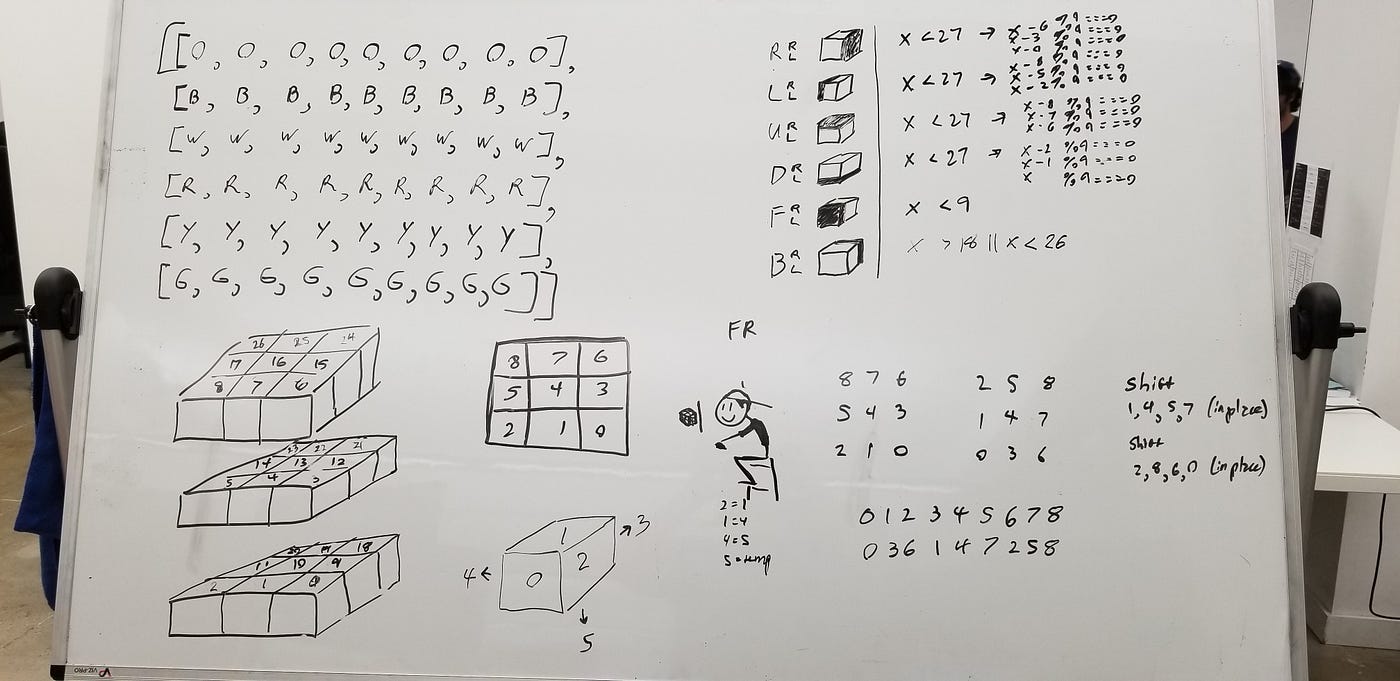 [[O, O, O, O, O, O, O, O, O],
[B, B, B, B, B, B, B, B, B],
[W, W, W, W, W, W, W, W, W],
[R, R, R, R, R, R, R, R, R],
[Y, Y, Y, Y, Y, Y, Y, Y, Y],
[G, G, G, G, G, G, G, G, G]]
R R L
L R L
U R L
D R L
F R L
B R L
x < 27 → x - 6 % 9 === 0
x - 3 % 9 === 0
x - 0 % 9 === 0
x < 27 → x - 8 % 9 === 0
x - 5 % 9 === 0
x - 2 % 9 === 0
x < 27 → x - 8 % 9 === 0
x - 7 % 9 === 0
x - 6 % 9 === 0
x < 27 → x - 2 % 9 === 0
x - 1 % 9 === 0
x % 9 === 0
x < 9
x > 18 || x < 26
26 25 24
17 16 15
8 7 6
23 22 21
14 13 12
5 4 3
20 19 18
11 10 9
2 1 0
8 7 6
5 4 3
2 1 0
1
0 2
3
4
5
FR
2 = 1
1 = 4
4 = 5
5 = temp
8 7 6
5 4 3
2 1 0
2 5 8
1 4 7
0 3 6
0 1 2 3 4 5 6 7 8
0 3 6 1 4 7 2 5 8
shift
1, 4, 5, 7 (in place)
shift
2, 8, 6, 0 (in place)
VIZ-PRO